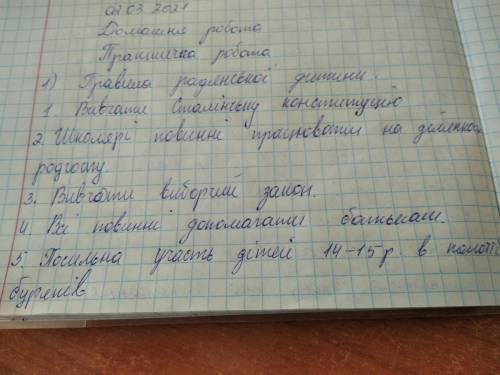 02.03.2021
Домашня робота
Практична робота
1) Правила радянської дитини.
1. Вивчати Сталінську конституцію
2. Школярі повинні працювати на ділянках
радгоспу
3. Вивчати виборчий закон.
4. Всі повинні допомагати батькам.
5. Посильна участь дітей 14-15 р. в
бур'янів